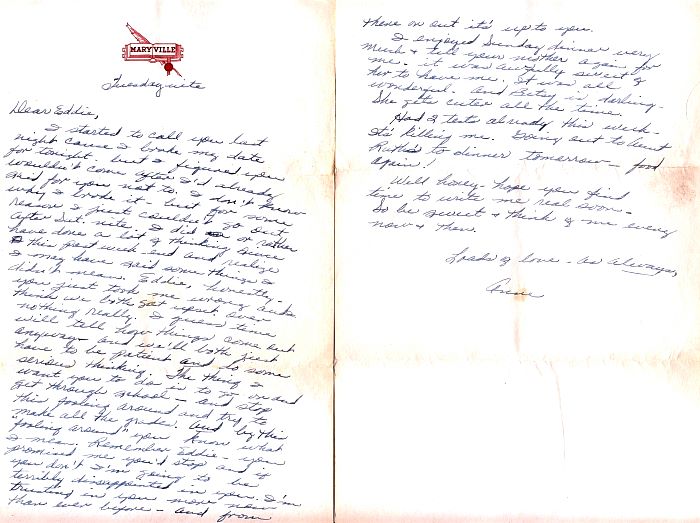 MARYVILLE
Tuesday nite
Dear Eddie,
I started to call you last
night cause I broke my date
for tonight. but I figured you
wouldn't come after I'd already
said for you not to. I don't know
why I broke it - but for some
reason I just couldn't go out
after Sat. nite. I did or rather
have done a lot of thinking since
this past week-end and realize
I may have said some things I
didn't mean. Eddie, honestly -
you just took me wrong and
think we both got upset over
nothing really. I guess time
will tell how things come out
anyway - and we'll both just
have to be patient and do some
serious thinking. The thing I
want you to do is to go on and
get through school - and stop
this fooling around and try to
make all the grades. And by this
"fooling around" you know what
I mean. Remember Eddie - you
promised me you'd stop and if
you don't I'm going to be
terribly disappointed in you. I'm
trusting in you more now
than ever before - and from
there on out it's up to you.
I enjoyed Sunday dinner very
much & tell your mother again for
me. it was awfully sweet of
her to have me. It was all
wonderful. and Betsy is darling.
She gets cuter all the time.
Had 2 tests already this week -
it's killing me. Going out to Aunt
Ruth's to dinner tomorrow - food
again!
Well honey - hope you find
time to write me real soon.
So be sweet & think of me every
now & then.
Loads of love - as always,
Anne